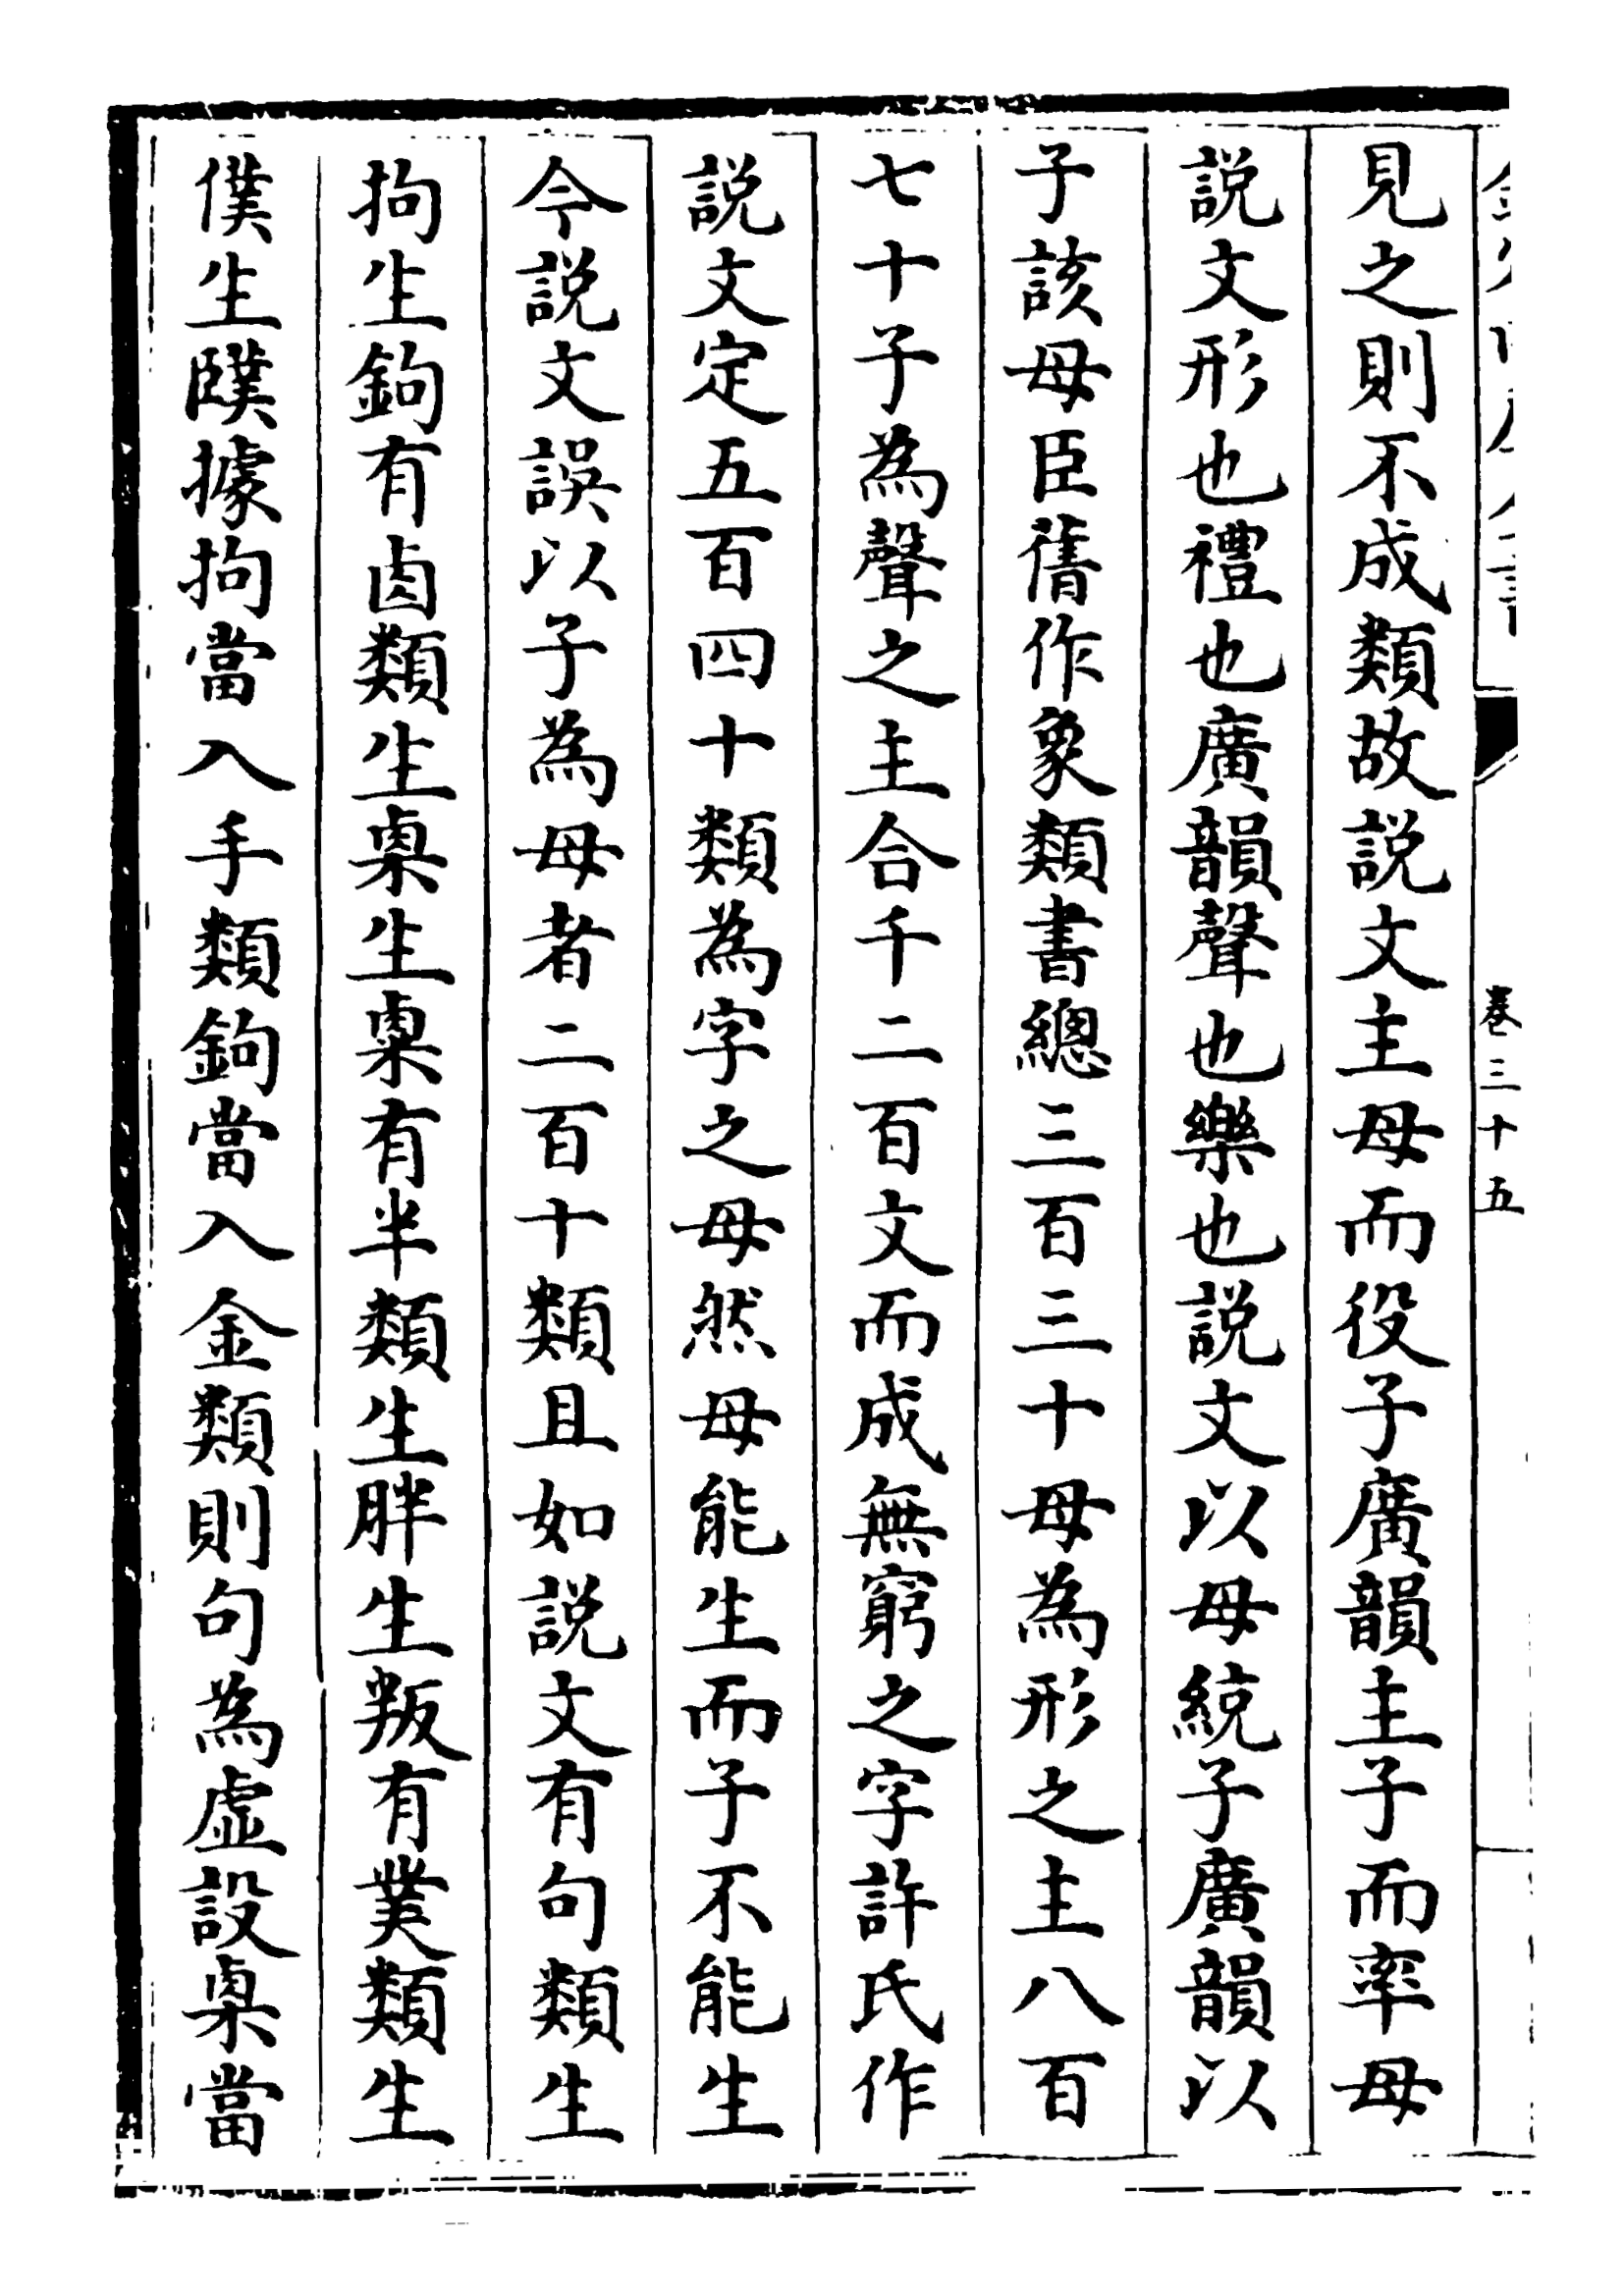 見之則不成類故説文主母而役子廣韻主子而率母
説文形也禮也廣韻聲也樂也説文以母統子廣韻以
子該母臣舊作象類書總三百三十母為形之主八百
七十子為聲之主合千二百文而成無窮之字許氏作
説文定五百四十類為字之母然母能生而子不能生
今説文誤以子為母者二百十類且如説文有句類生
拘生鉤有鹵類生㮚生㮚有半類生胖生叛有業類生
僕生䑑據拘當入手類鉤當入金類則句為虛設㮚當
卷三十五